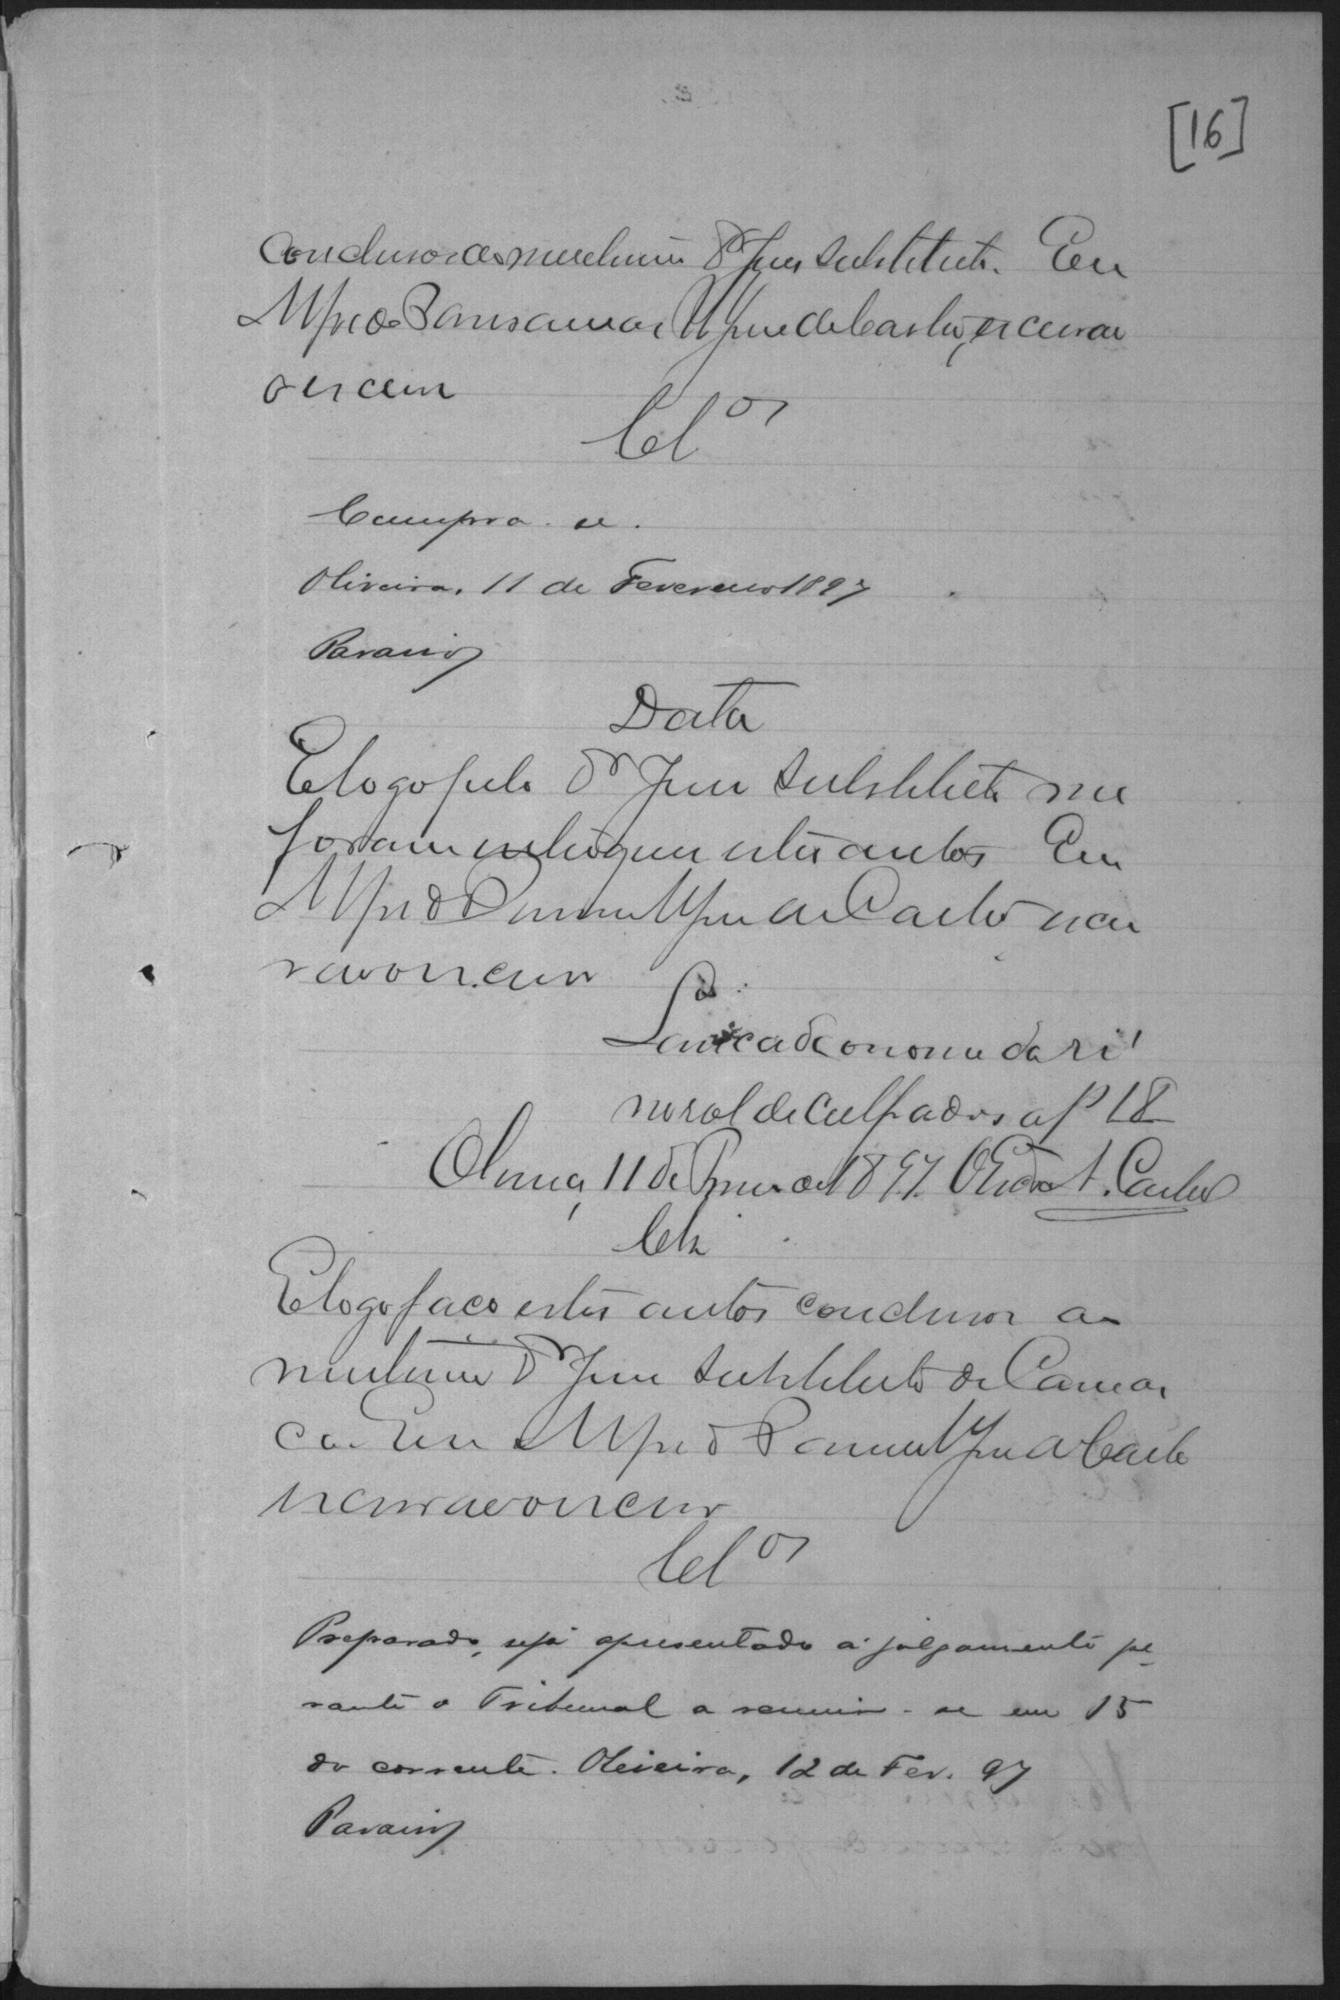 [16]
conclusos ao meritissimo Dr Juiz substituto. Eu
Alfredo de Castro, escrivão
escrevi
Cl.os
Cumpra-se.
Oliveira, 11 de Fevereiro 1897
Paraiso
Data
E logo pelo Dr Juiz substituto me
foram entregues estes autos Eu
Alfredo de Castro escri
vão o escrevi
Lancado o nome da ré
no rol de culpados a f 18
Olivra, 11 de 1897. O Escrivão A. Castro
Cls
E logo faço estes autos conclusos ao
meritissimo Dr Juiz substituto da Comar
ca. Eu Alfredo de Castro
escrivão o escrevi
Cl.os
Preparado, seja apresentado a julgamento pe-
rante o Tribunal a reunir-se em 15
do corrente. Oliveira, 12 de Fev. 97
Paraiso